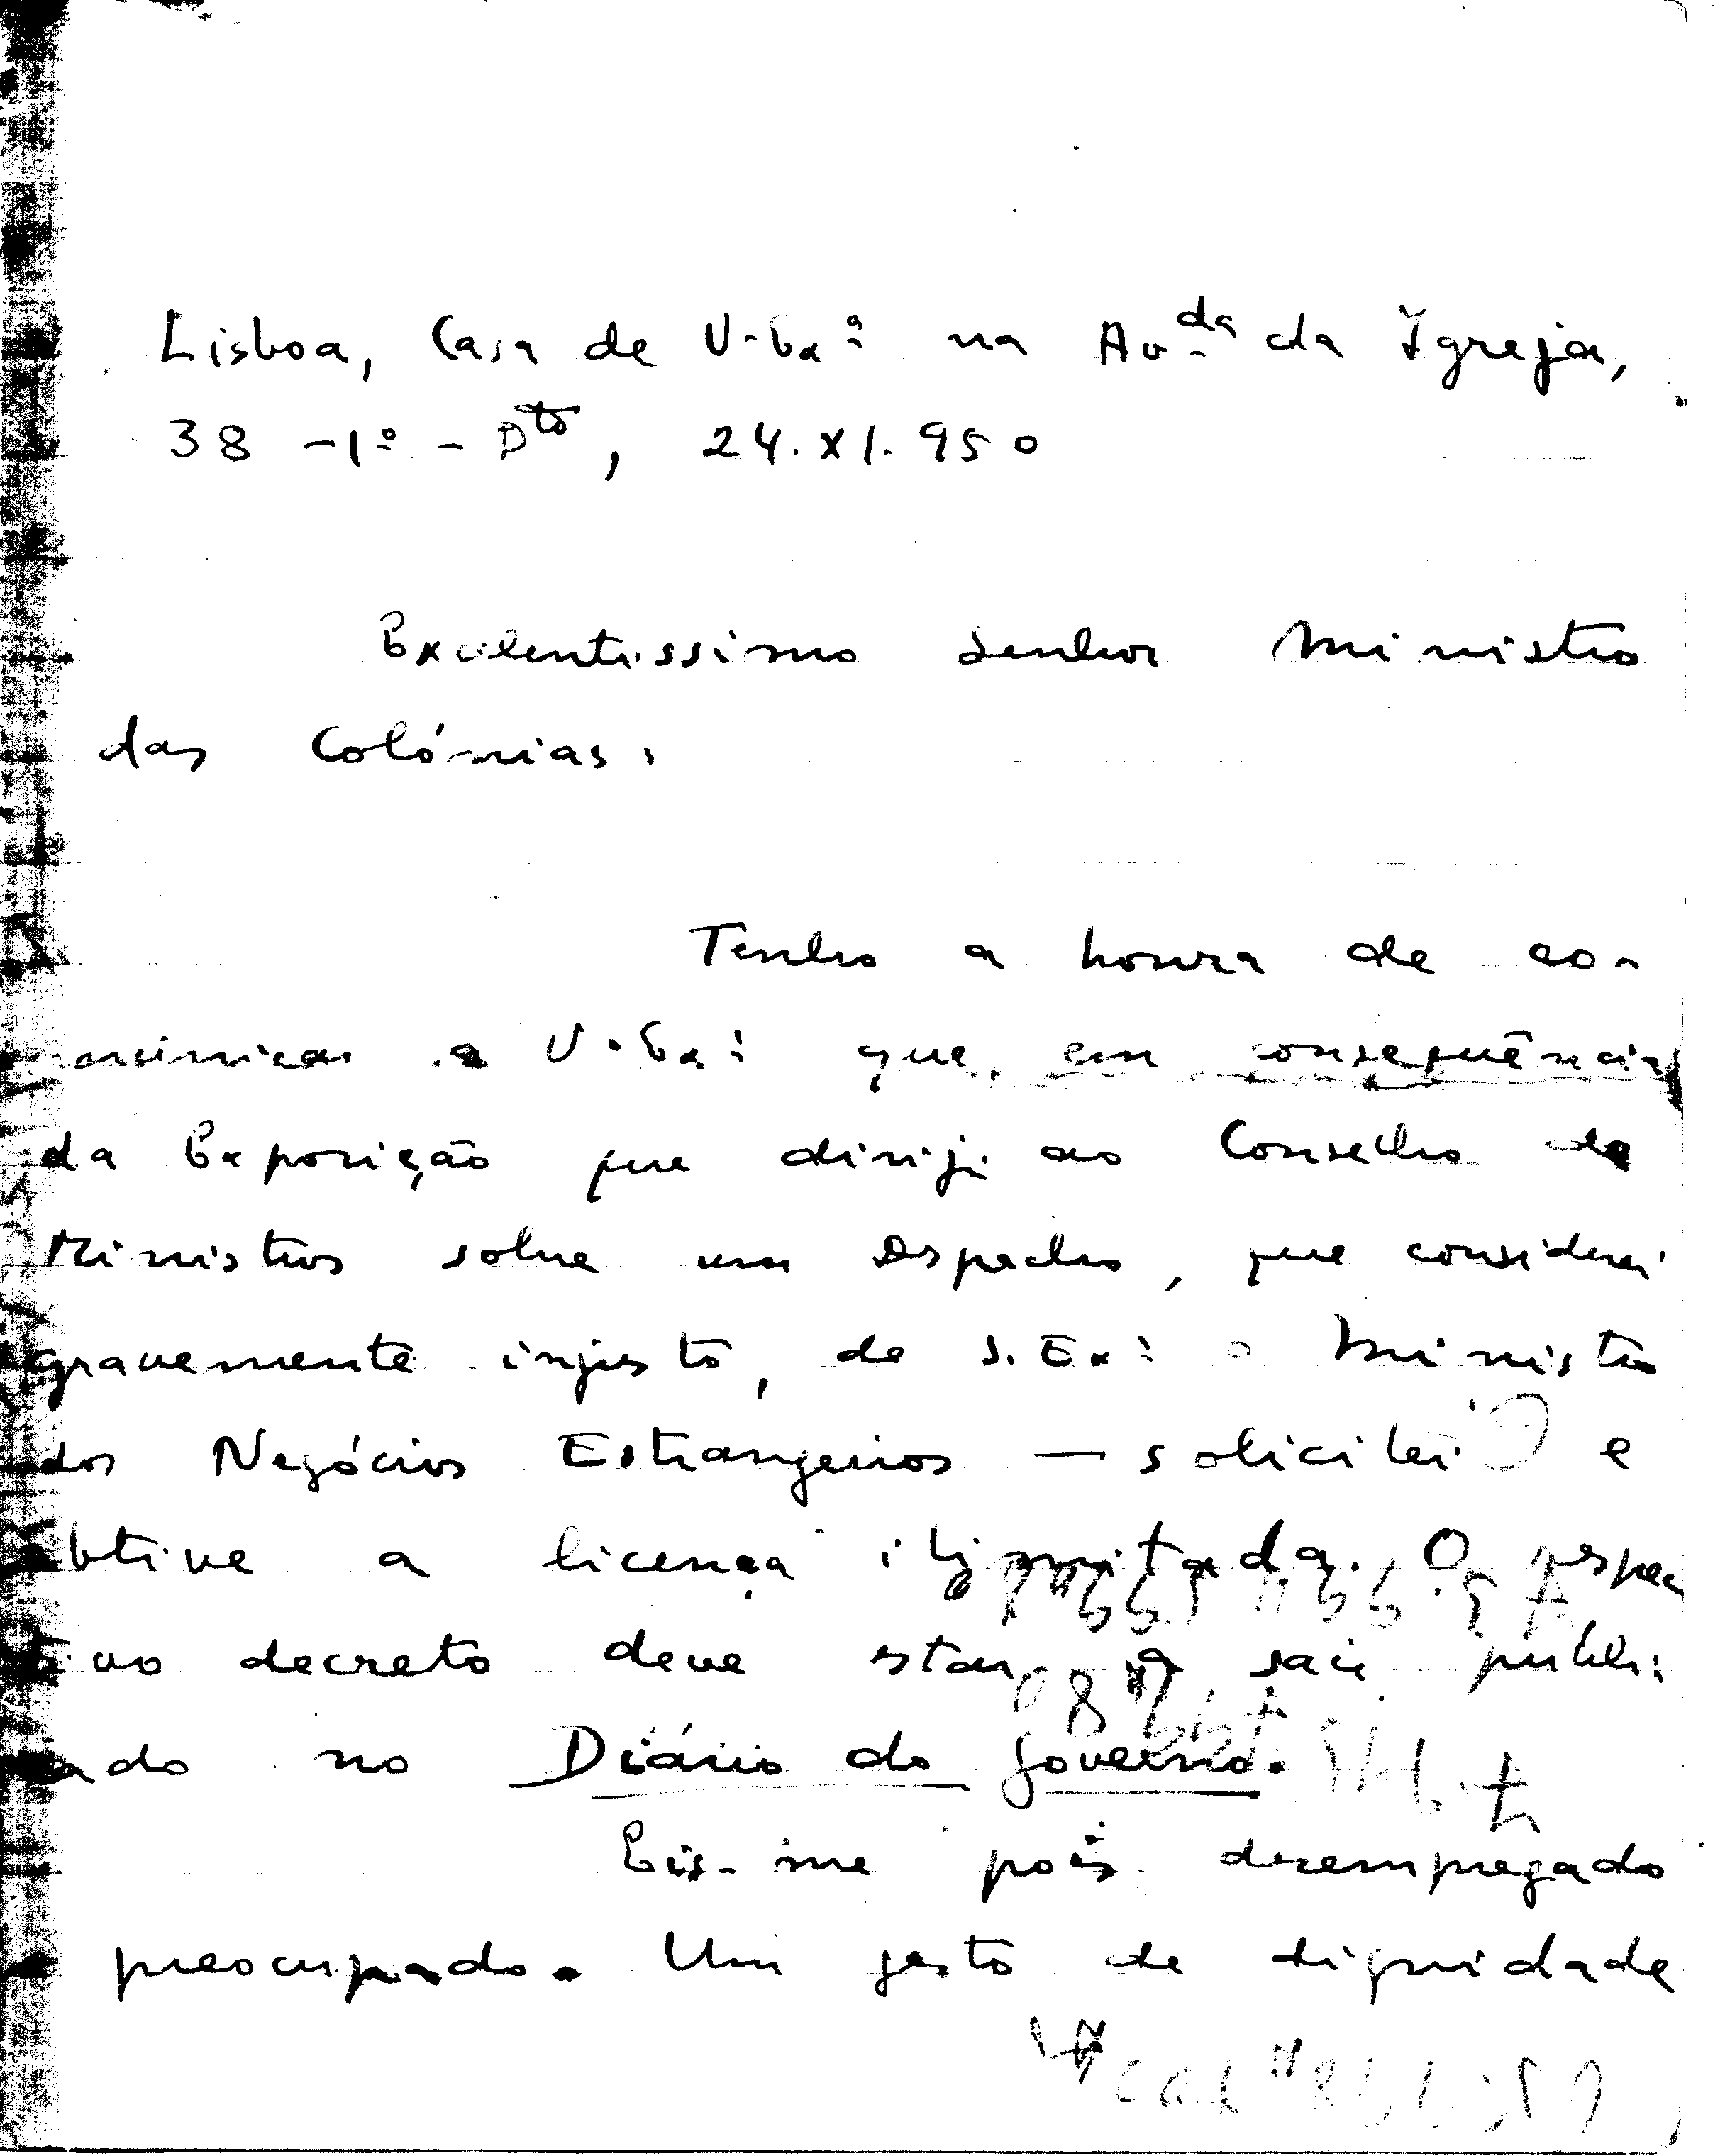 Lisboa, Casa de V. Exª na Av.da da Igreja,
38 - 1º - Dto, 24.XI.950
Excelentissimo Senhor Ministro
das Colónias,
Tenho a honra de co-
municar a V. Exª que, em consequência
da Exposição que dirigi ao Conselho de
Ministros sobre um Despacho, que considerei
gravemente injusto, de S. Exª o Ministro
dos Negócios Estrangeiros — solicitei e
obtive a licença ilimitada. O respec
tivo decreto deve estar a sair publi
cado no Diário do Governo.
Eis-me pois desempregado
e preocupado. Um gesto de dignidade